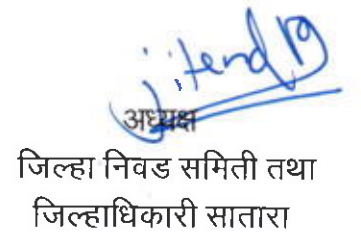 jitend
अध्यक्ष
जिल्हा निवड समिती तथा
जिल्हाधिकारी सातारा